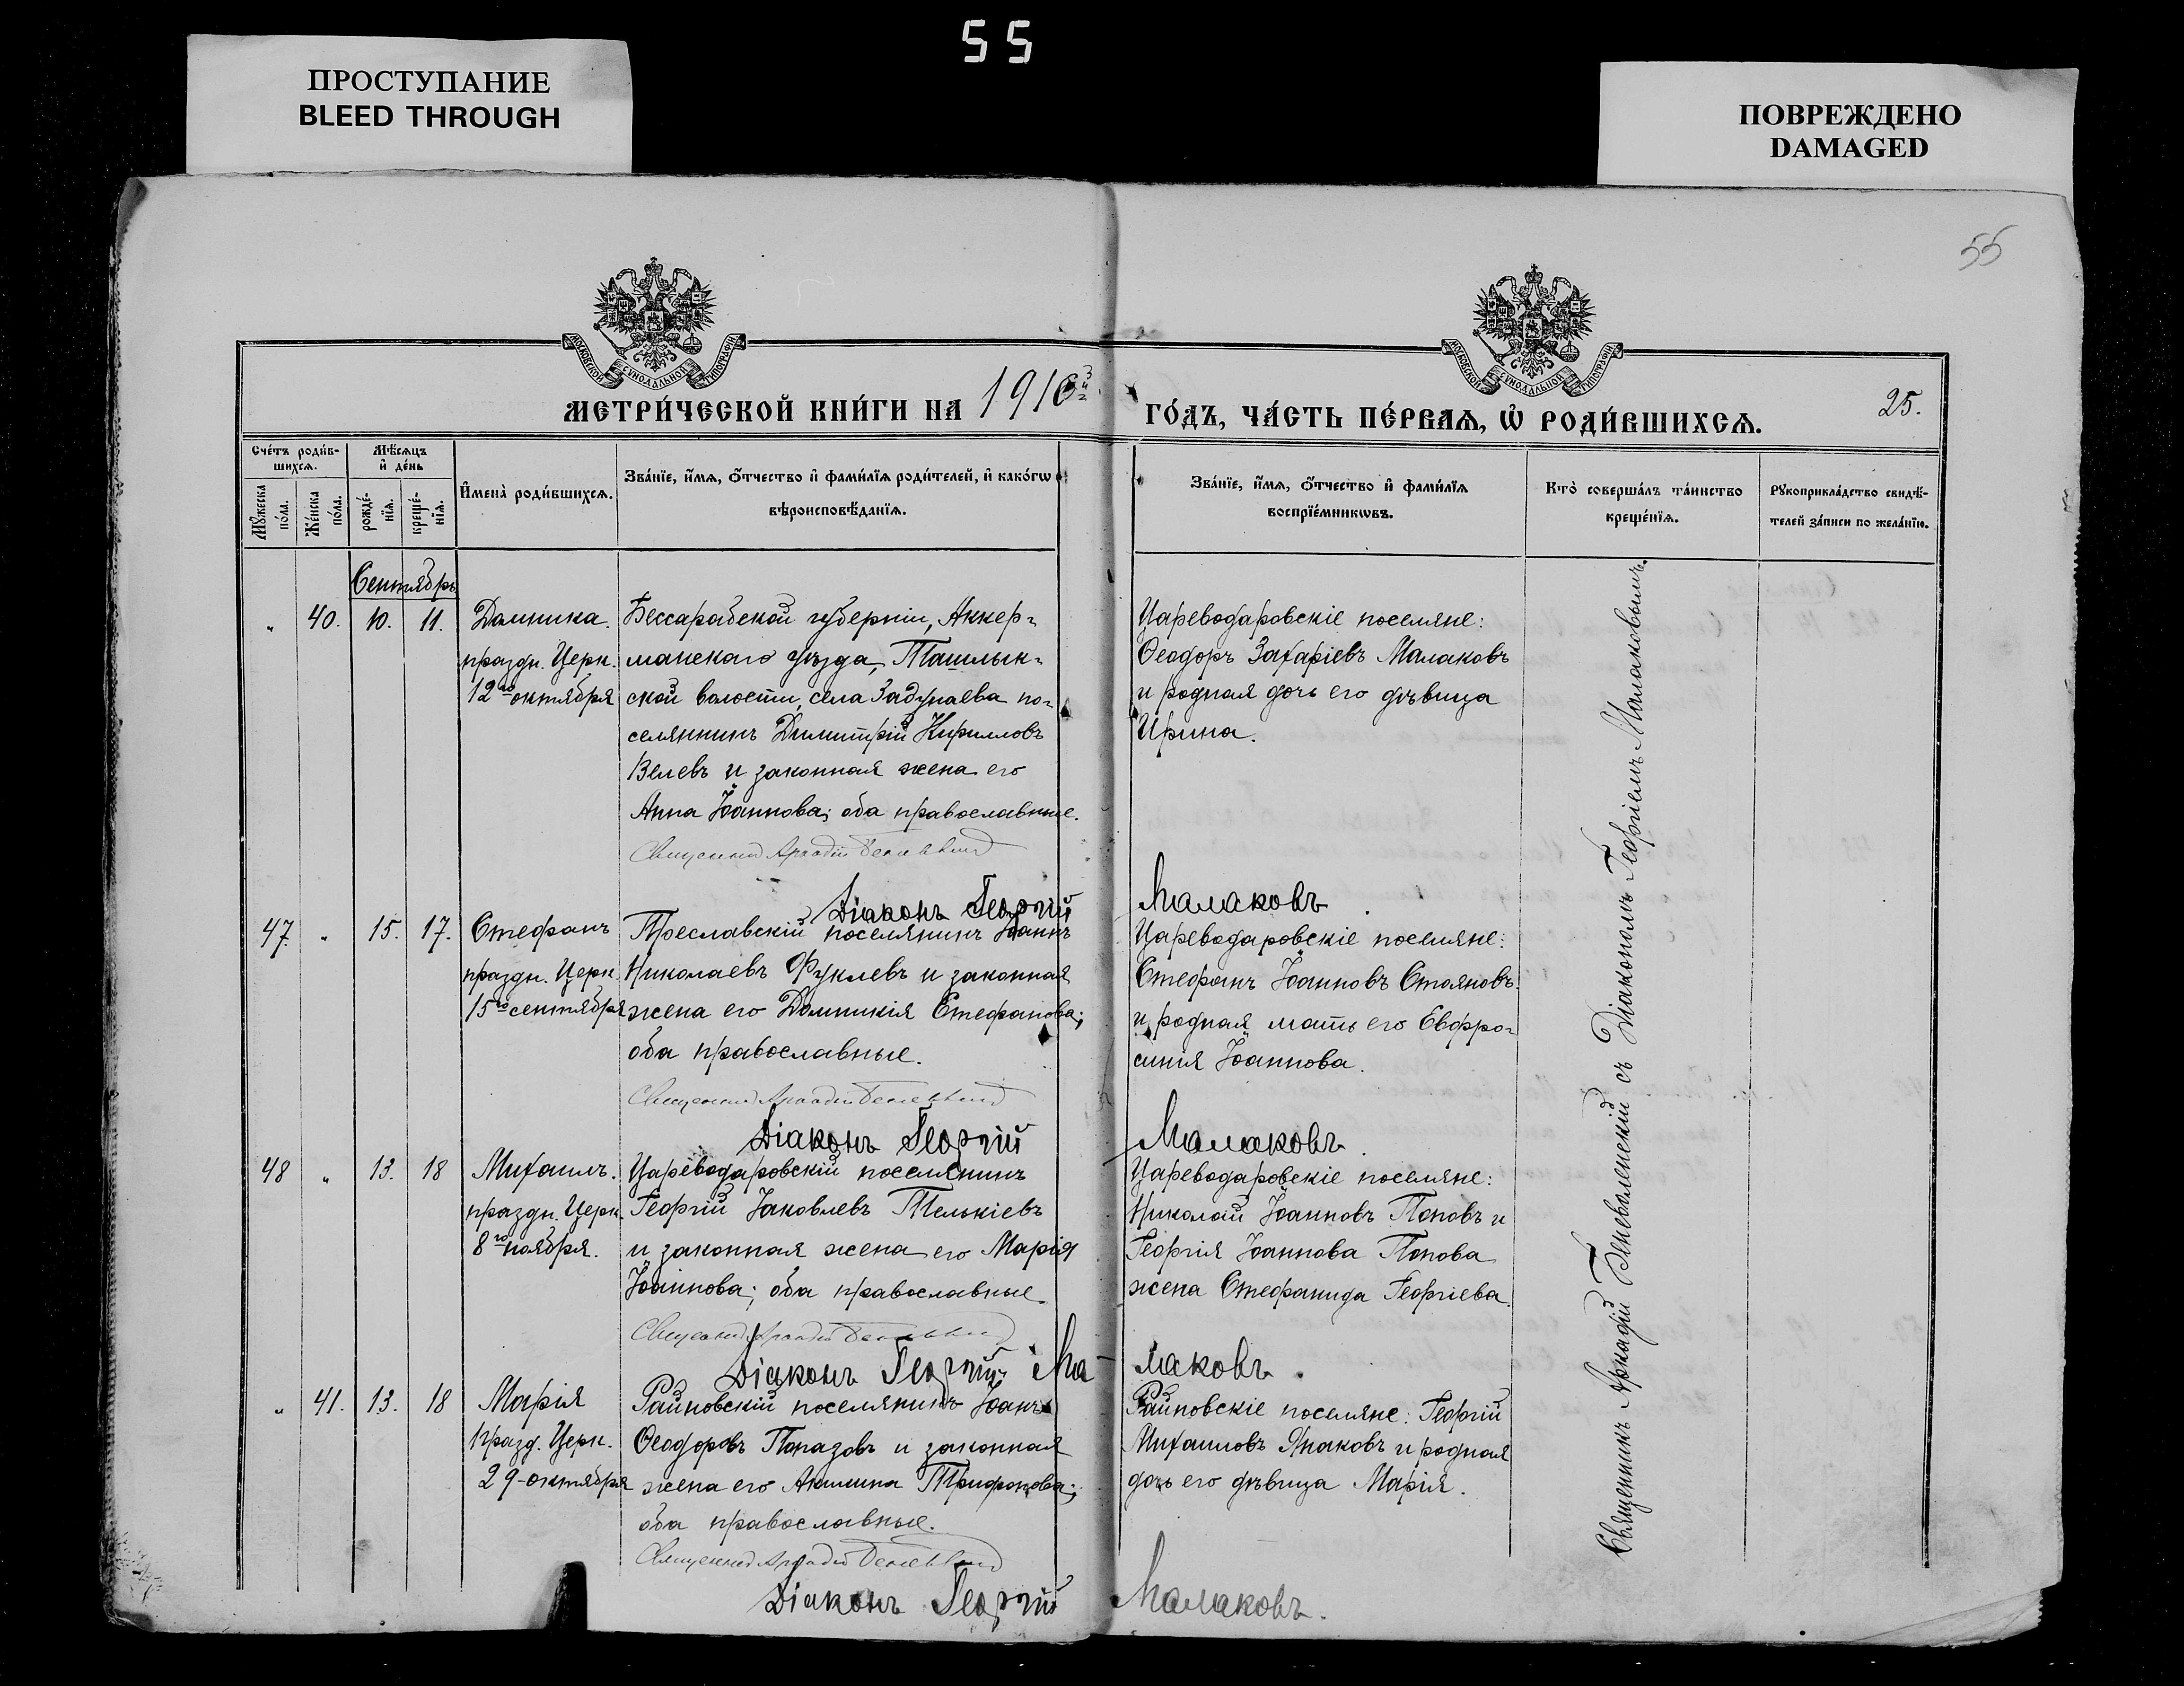 55
ПРОСТУПАНИЕ
BLEED THROUGH
ПОВРЕЖДЕНО
DAMAGED
55
МОСКОВСКОЙ СѴНОДАЛЬНОЙ ТИПОГРАФІИ
МОСКОВСКОЙ СѴНОДАЛЬНОЙ ТИПОГРАФІИ
МЕТРИ́ЧЕСКОЙ КНИ́ГИ НА 1916й
ГО́ДЪ, ЧА́СТЬ ПЕ́РВАѦ, Ѽ РОДИ́ВШИХСѦ.
25.
Сче́тъ роди́в-
шихсѧ.
Мꙋ́жеска по́ла.
Же́нска по́ла.
Мѣ́сѧцъ
и҆ де́нь
рожде́-
нїѧ.
креще́-
нїѧ.
И҆мена̀ роди́вшихсѧ.
Зва́нїе, и҆́мѧ, ѻ҆́тчество и҆ фами́лїѧ роди́телей, и҆ како́гѡ
вѣроисповѣ́данїѧ.
Зва́нїе, и҆́мѧ, ѻ҆́тчество и҆ фами́лїѧ
воспрїе́мникѡвъ.
Кто̀ соверша́лъ та́инство
креще́нїѧ.
Рꙋкоприкла́дство свидѣ́-
телей за́писи по жела́нїю.
Сентябрь
" 40. 10. 11.
Домника.
праздн. Церк.
12го октября
Бессарабской губерніи, Аккер-
манскаго уѣзда, Ташлык-
ской волости, села Задунаева по-
селянинъ Димитрій Кирилловъ
Велевъ и законная жена его
Анна Іоаннова; оба православные.
Священникъ Аркадій
Діаконъ Георгій Малаковъ
Цареводаровскіе поселяне:
Ѳеодоръ Захаріевъ Малаковъ
и родная дочь его дѣвица
Ирина.
47. " 15. 17.
Стефанъ
праздн. Церк.
15го сентября
Троеславскій поселянинъ Іоаннъ
Николаевъ Фуклевъ и законная
жена его Домникія Стефанова;
оба православные.
Священникъ Аркадій
Діаконъ Георгій Малаковъ.
Цареводаровскіе поселяне:
Стефанъ Іоанновъ Стояновъ
и родная мать его Евфро-
синія Іоаннова.
48 " 13. 18
Михаилъ.
праздн. Церк.
8го ноября.
Цареводаровскій поселянинъ
Георгій Іаковлевъ Телькіевъ
и законная жена его Марія
Іоаннова; оба православные.
Священникъ Аркадій
Діаконъ Георгій Ма-
лаковъ.
Цареводаровскіе поселяне:
Николай Іоанновъ Поповъ и
Георгія Іоаннова Попова
жена Стефанида Георгіева.
" 41. 13. 18
Марія
празд. Церк.
29-октября
Райновскій поселянинъ Іоаннъ
Ѳеодоровъ Попазовъ и законная
жена его Акилина Трифонова;
оба православные.
Священникъ Аркадій
Діаконъ Георгій Малаковъ.
Райновскіе поселяне: Георгій
Михаиловъ Янаковъ и родная
дочь его дѣвица Марія.
Священникъ Аркадій Беневоленскій съ Діакономъ Георгіемъ Малаковымъ.